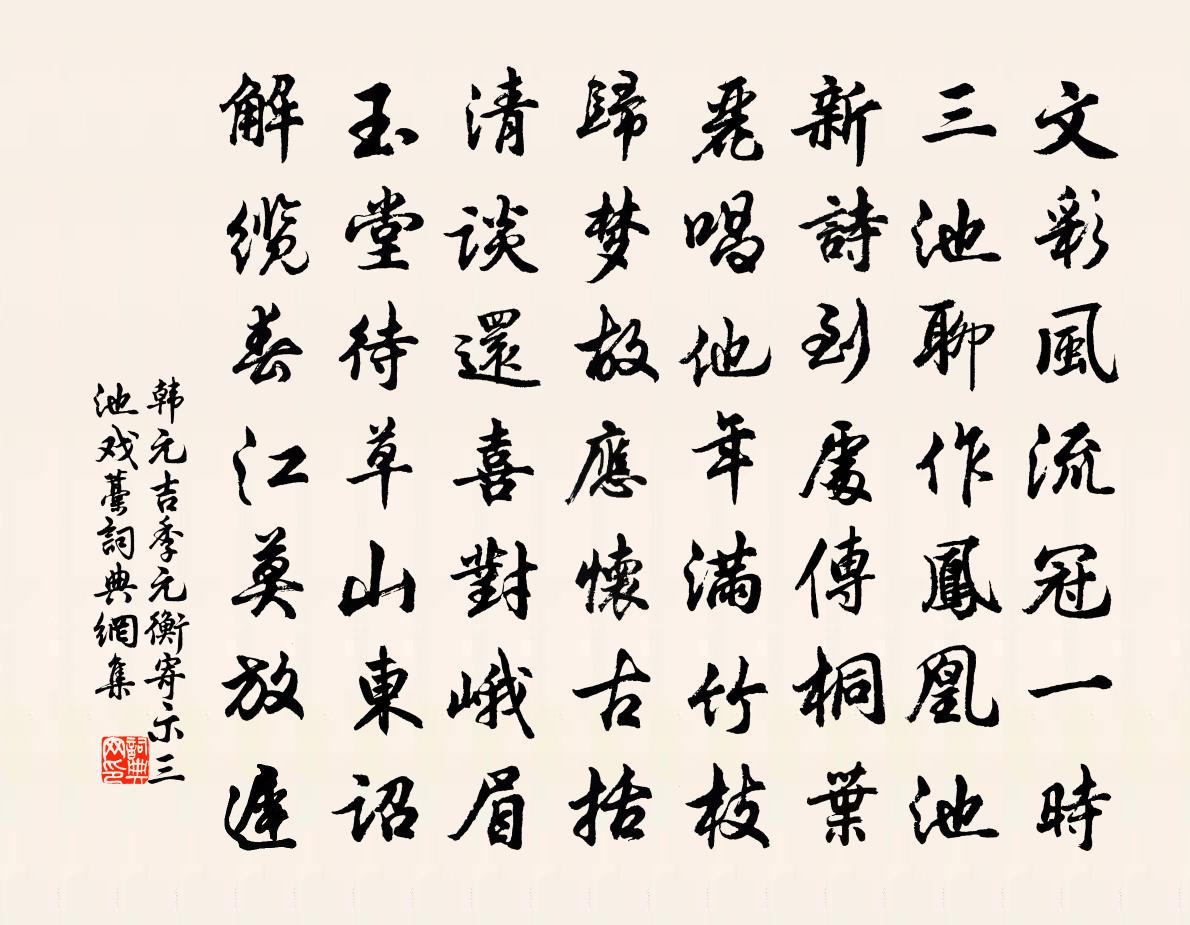 文彩風流冠一時
三池聊作鳳凰池
新詩到處傳桐葉
麗唱他年滿竹枝
歸梦故應懷古括
清談還喜對峨眉
玉堂待草山東詔
解缆春江莫放遲
韩元吉季元衡寄示三
池戏藁詞典網集
詞典網印